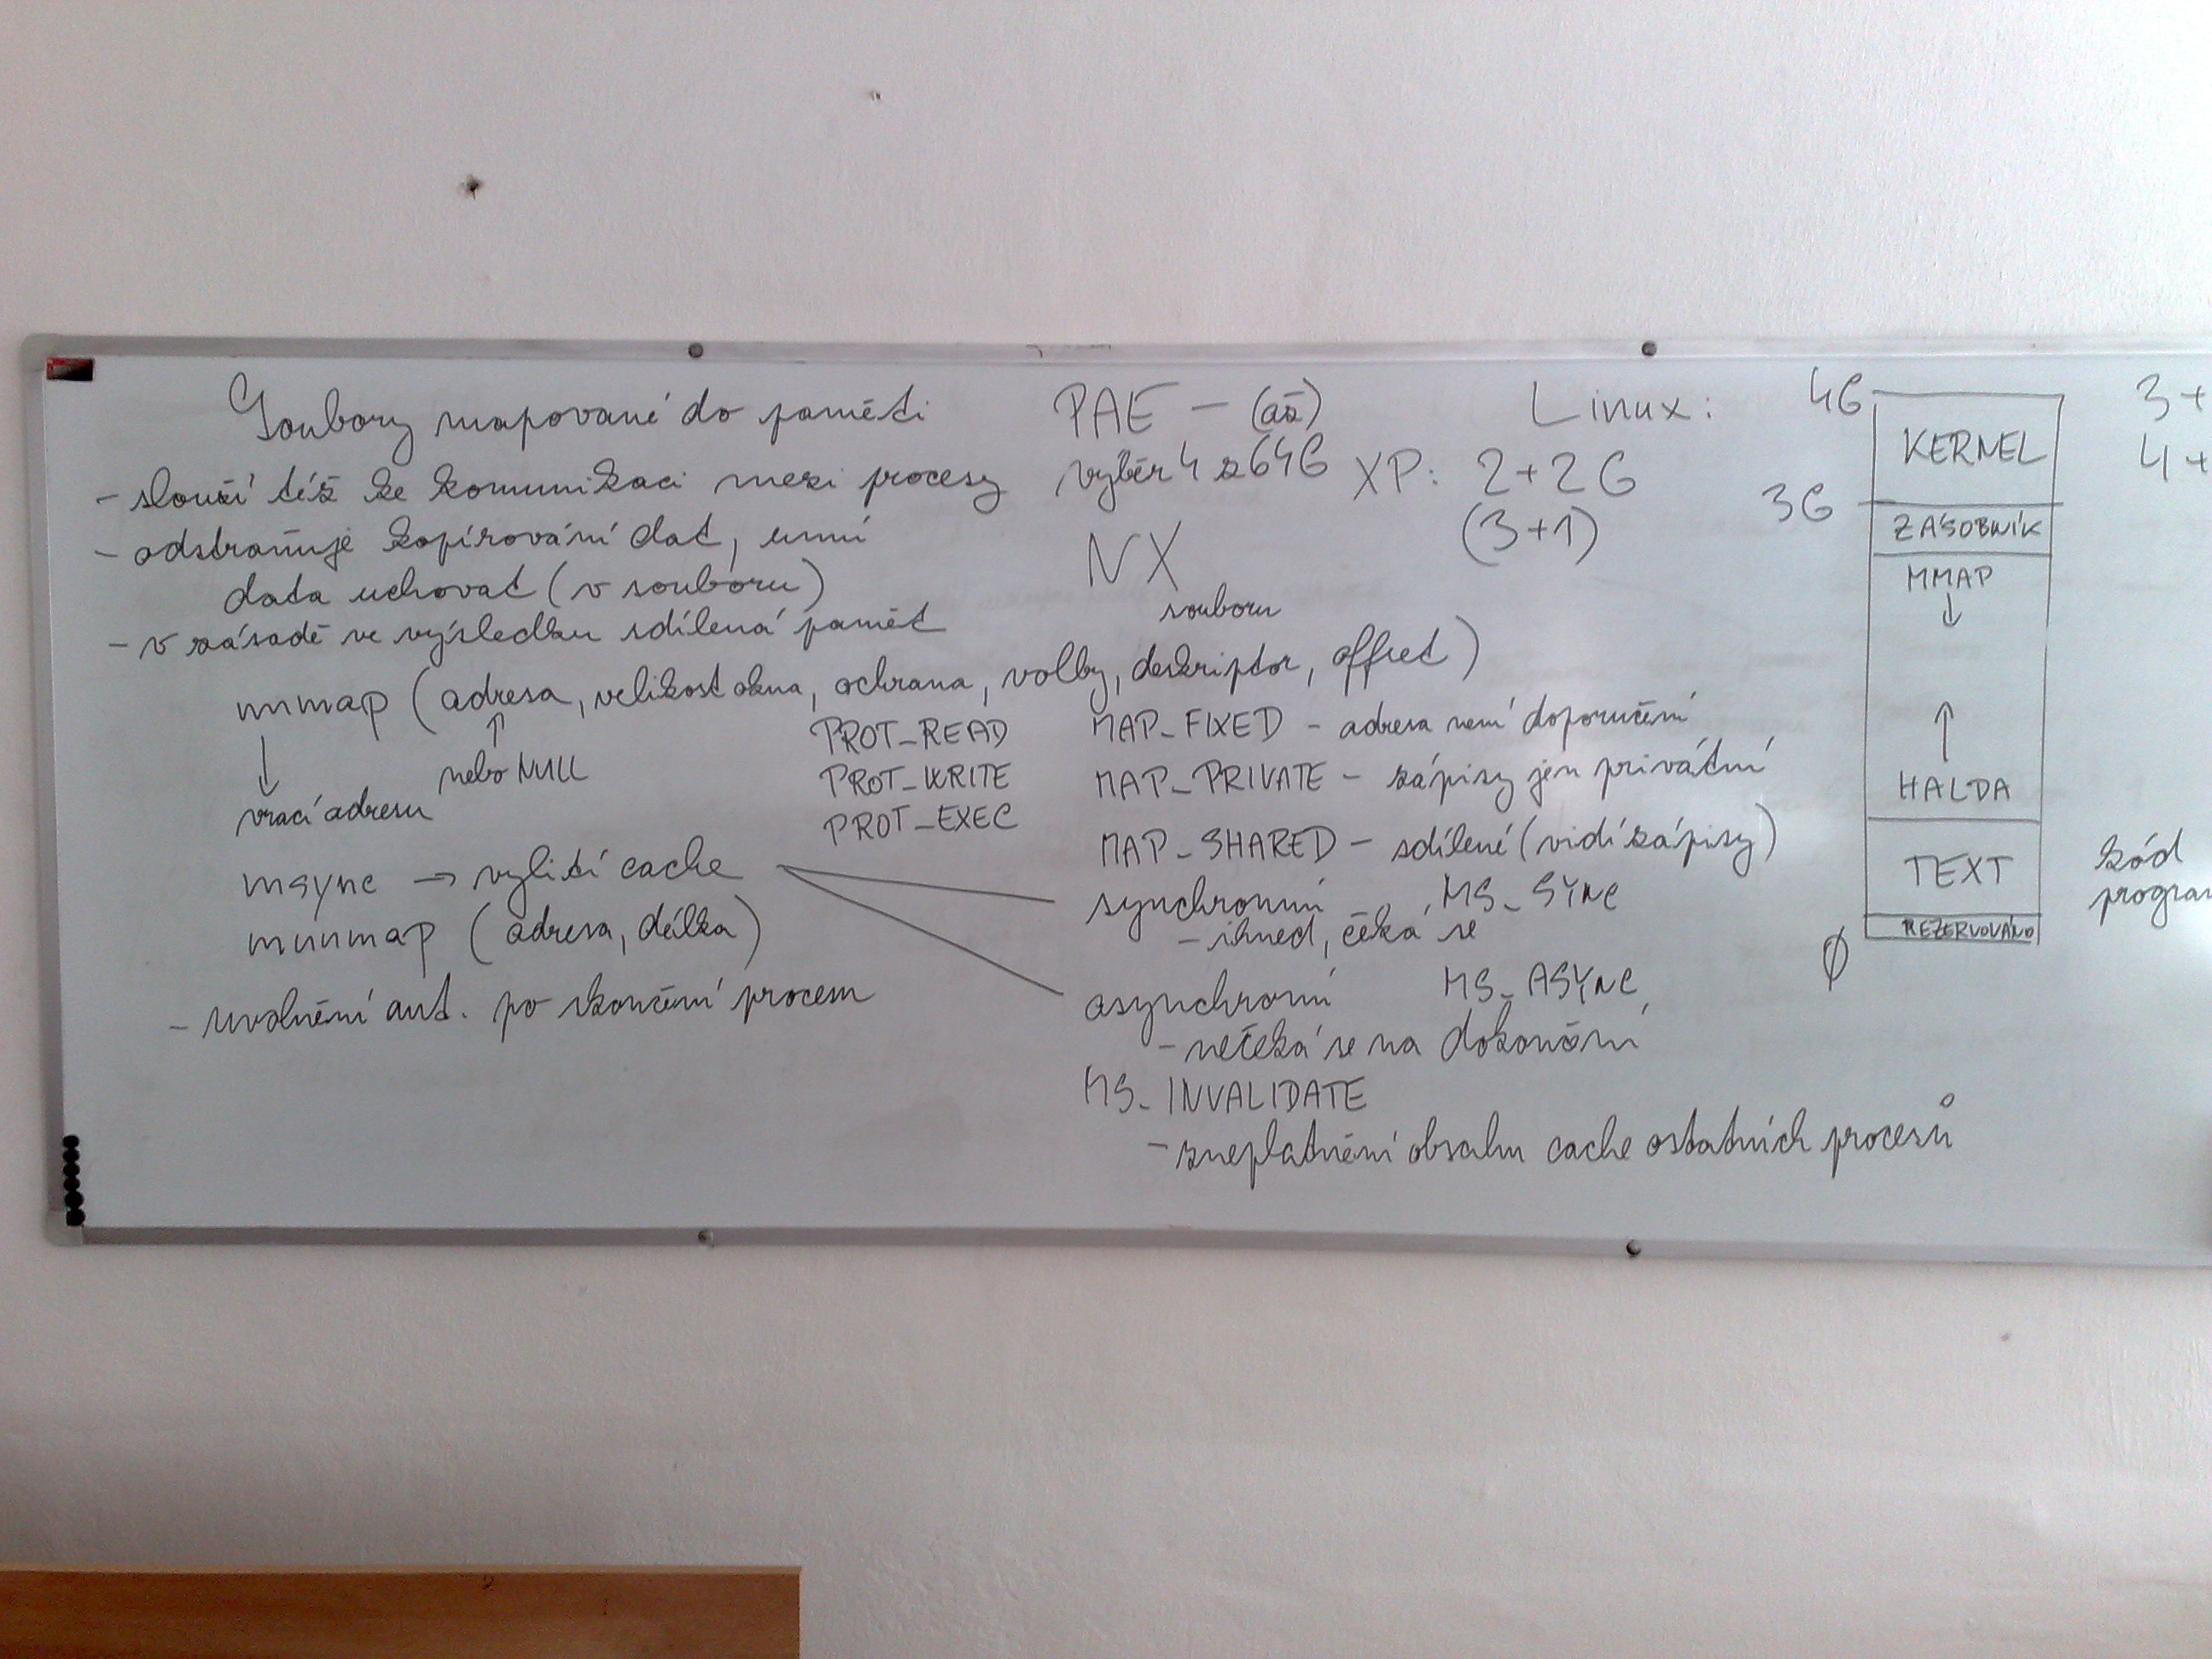 Soubory mapované do paměti
- slouží též ke komunikaci mezi procesy
- odstraňuje kopírování dat, umí
data uchovat (v souboru)
- v zásadě ve výsledku sdílená paměť
mmap (adresa, velikost okna, ochrana, volby, deskriptor, offset)
souboru
↓
vrací adresu
↑
nebo NULL
PROT_READ
PROT_WRITE
PROT_EXEC
MAP_FIXED - adresa není doporučení
MAP_PRIVATE - zápisy jen privátní
MAP_SHARED - sdílené (vidí zápisy)
msync → vylití cache
synchronní MS_SYNC
- ihned, čeká se
asynchronní MS_ASYNC
- nečeká se na dokončení
MS_INVALIDATE
- zneplatnění obsahu cache ostatních procesů
munmap (adresa, délka)
- uvolnění aut. po skončení procesu
PAE - (až)
výběr 4 z 64G
NX
XP: 2+2G
(3+1)
Linux:
4G
KERNEL
3G
ZÁSOBNÍK
MMAP
↓
↑
HALDA
TEXT
REZERVOVÁNO
Ø
3+
4+
kód
progra